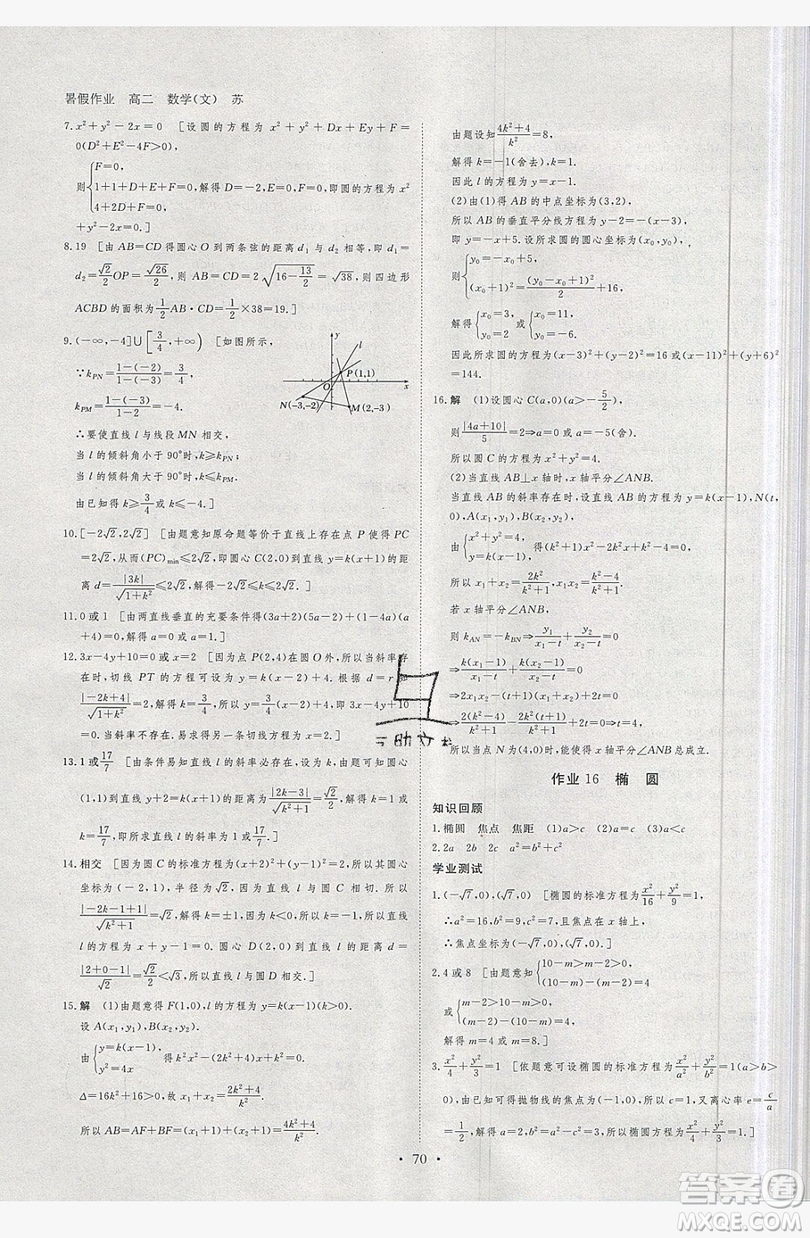 暑假作业 高二 数学(文) 苏
7. x²+y²-2x=0 [设圆的方程为 x²+y²+Dx+Ey+F=
0(D²+E²-4F>0),
则{F=0, 1+1+D+E+F=0, 4+2D+F=0, 解得 D=-2, E=0, F=0, 即所求圆的方程为 x²
+y²-2x=0.]
8. 19 [由 AB=CD 得圆心 O 到两条弦的距离 d₁=
d₂=√2/2 OP=√26/2, AB=CD=2√(16-13/2)=√38, 则四边形
ACBD 的面积为 1/2 AB·CD=1/2×38=19.]
9. (-∞,-4]∪[3/4,+∞) [如图所示,
∵k_PN=(1-(-2))/(1-(-3))=3/4,
k_PM=(1-(-3))/(1-2)=-4.
∴要使直线 l 与线段 MN 相交,
当 l 的倾斜角小于 90°时,k≥k_PN;
当 l 的倾斜角大于 90°时,k≤k_PM,
由已知得 k≥3/4 或 k≤-4.]
y
l
P(1,1)
O
x
N(-3,-2)
M(2,-3)
10. [-2√2,2√2] [由题意知原命题等价于直线上存在点 P 使得 PC
=2√2,从而(PC)min≤2√2,即圆心 C(2,0)到直线 y=k(x+1)的距
离 d=|3k|/√(1+k²)≤2√2,解得-2√2≤k≤2√2.]
11. 0或1 [由两直线垂直的充要条件得(3a+2)(5a-2)+(1-4a)(a
+4)=0,解得 a=0 或 a=1.]
12. 3x-4y+10=0 或 x=2 [因为点 P(2,4)在圆 O 外,所以当斜率存
在时,切线 PT 的方程可设为 y=k(x-2)+4.根据 d=r 即
|-2k+4|/√(1+k²)=2,解得 k=3/4,所以 y=3/4(x-2)+4,即 3x-4y+10=
0.当斜率不存在时,易求得另一条切线方程为 x=2.]
13. 1或17/7 [由条件易知直线 l 的斜率必存在,设为 k.圆心
(1,1)到直线 y+2=k(x+1)的距离为 |2k-3|/√(k²+1)=√2/2,解得 k=1 或 k=
17/7,即所求直线 l 的斜率为 1 或 17/7.]
14. 相交 [因为圆 C 的标准方程为(x+2)²+(y-1)²=2,所以其圆心
坐标为(-2,1),半径为√2,因为直线 l 与圆 C 相切,所以
|-2k-1+1|/√(k²+1)=√2,解得 k=±1,因为 k<0,所以 k=-1,所以直线
l 的方程为 x+y-1=0.圆心 D(2,0)到直线 l 的距离 d=
|2+0-1|/√2=√2/2<√3,所以直线 l 与圆 D 相交.]
15. 解 (1)由题意得 F(1,0),l 的方程为 y=k(x-1)(k>0).
设 A(x₁,y₁),B(x₂,y₂).
由{y=k(x-1), y²=4x 得 k²x²-(2k²+4)x+k²=0.
Δ=16k²+16>0,故 x₁+x₂=(2k²+4)/k².
所以 AB=AF+BF=(x₁+1)+(x₂+1)=(4k²+4)/k².
由题设知(4k²+4)/k²=8,
解得 k=-1(舍去),k=1.
因此 l 的方程为 y=x-1.
(2)由(1)得 AB 的中点坐标为(3,2),
所以 AB 的垂直平分线方程为 y-2=-(x-3),
即 y=-x+5.设所求圆的圆心坐标为(x₀,y₀),
则{y₀=-x₀+5, (x₀+1)²=(y₀-x₀+1)²/2+16,
解得{x₀=3, y₀=2 或{x₀=11, y₀=-6.
因此所求圆的方程为(x-3)²+(y-2)²=16 或(x-11)²+(y+6)²
=144.
16. 解 (1)设圆心 C(a,0)(a>-5/2),
则|4a+10|/5=2⇒a=0 或 a=-5(舍).
所以圆 C 的方程为 x²+y²=4.
(2)当直线 AB⊥x 轴时,x 轴平分∠ANB.
当直线 AB 的斜率存在时,设直线 AB 的方程为 y=k(x-1),N(t,
0),A(x₁,y₁),B(x₂,y₂),
由{x²+y²=4, y=k(x-1) 得(k²+1)x²-2k²x+k²-4=0,
所以 x₁+x₂=2k²/(k²+1),x₁x₂=(k²-4)/(k²+1).
若 x 轴平分∠ANB,
则 k_AN=-k_BN⇒y₁/(x₁-t)+y₂/(x₂-t)=0
⇒k(x₁-1)/(x₁-t)+k(x₂-1)/(x₂-t)=0
⇒2x₁x₂-(t+1)(x₁+x₂)+2t=0
⇒2(k²-4)/(k²+1)-2k²(t+1)/(k²+1)+2t=0⇒t=4,
所以当点 N 为(4,0)时,能使得∠ANM=∠BNM 总成立.
作业 16 椭 圆
知识回顾
1. 椭圆 焦点 焦距 (1)a>c (2)a=c (3)a<c
2. 2a 2b 2c a²=b²+c²
学业测试
1. (-√7,0),(√7,0) [椭圆的标准方程为 x²/16+y²/9=1,
∴a²=16,b²=9,∴c²=7,且焦点在 x 轴上,
∴焦点坐标为(-√7,0),(√7,0).]
2. 4或8 [由题意知{10-m>m-2>0, (10-m)-(m-2)=4
或{m-2>10-m>0, (m-2)-(10-m)=4,
解得 m=4 或 m=8.]
3. x²/4+y²/3=1 [依题意可设椭圆的标准方程为 x²/a²+y²/b²=1(a>b>
0),由已知可得抛物线的焦点为(-1,0),所以 c=1,又离心率 e=c/a
=1/2,解得 a=2,b²=a²-c²=3,所以椭圆方程为 x²/4+y²/3=1.]
• 70 •
答案圈
MXQE.COM